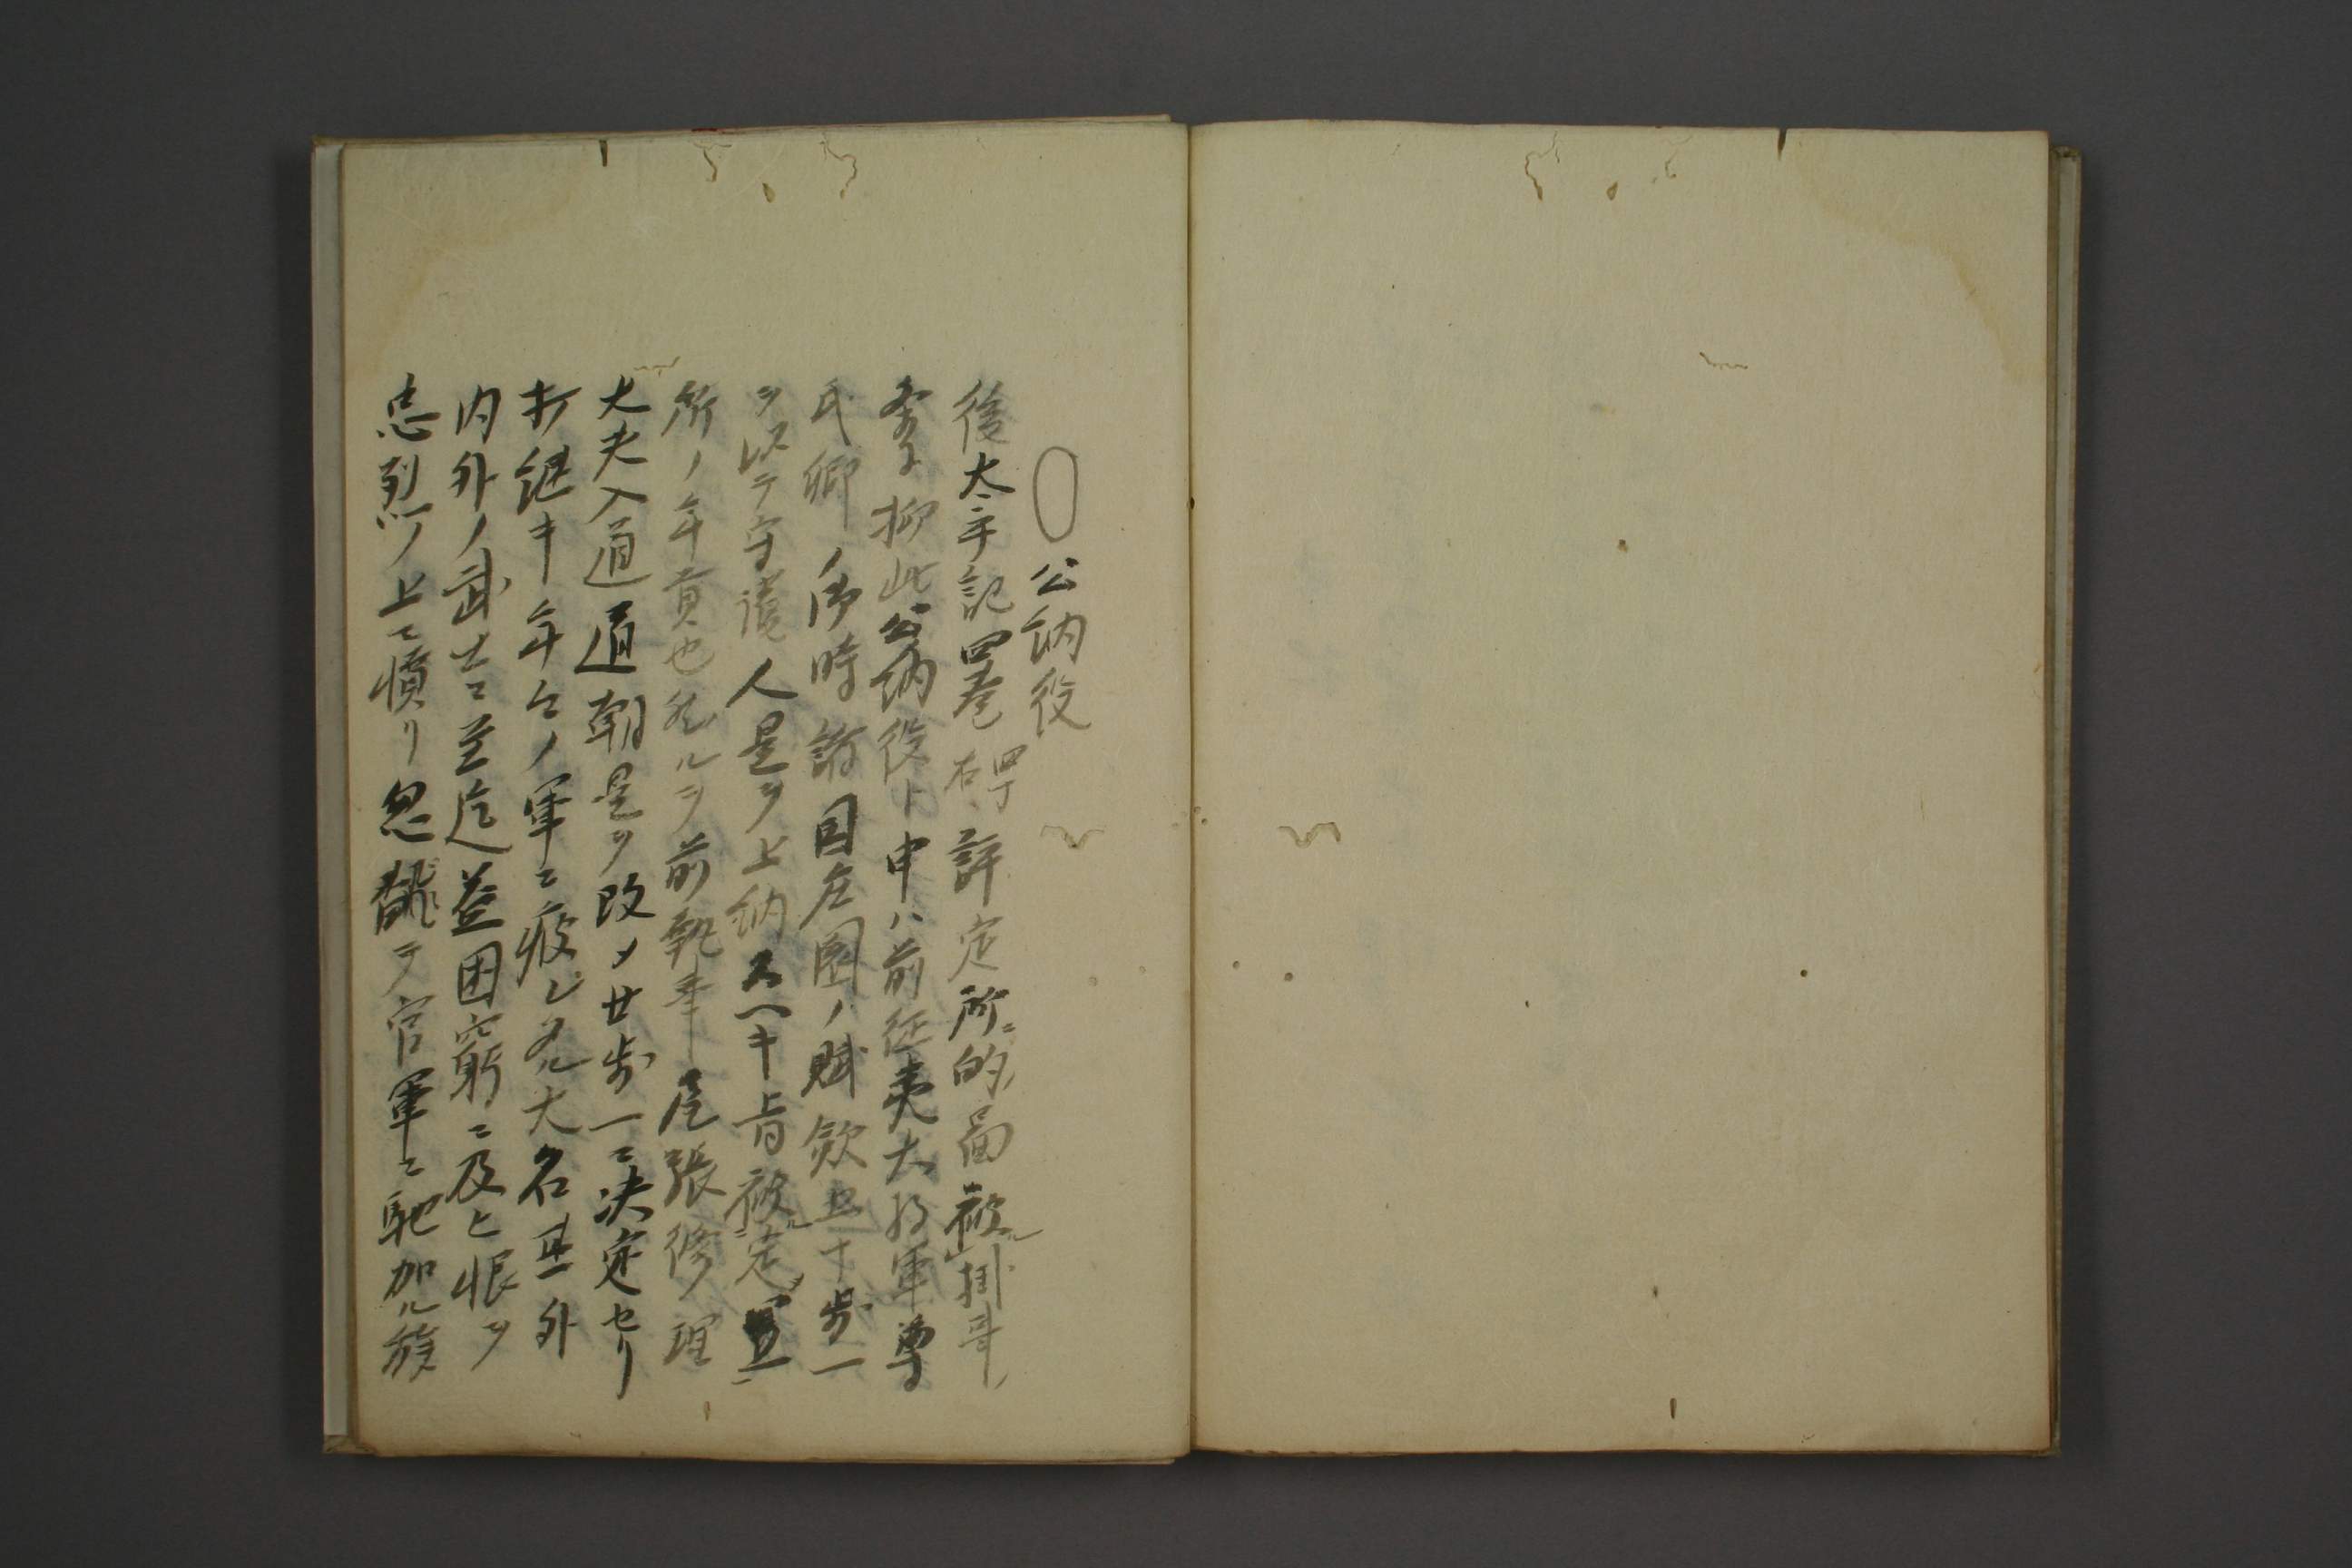 〇公納役
後太平記四巻四十丁右評定所ニ的ノ畠被掛哥ノ
条ニ抑此公納役ト申ハ前征夷大将軍尊
氏卿ノ御時諸国庄園ノ賦斂五十歩一
ヲ以テ守護人是ヲ上納スヘキ旨被定置
所ノ年貢也然ルヲ前執事尾張修理
大夫入道道朝是ヲ改メ廿歩一ニ决定セリ
打継キ年々ノ軍ニ疲レタル大名其外
内外ノ武士ニ至迄益困窮ニ及ヒ恨ヲ
忠烈ノ上ニ憤リ忽翻テ官軍ニ馳加ル族